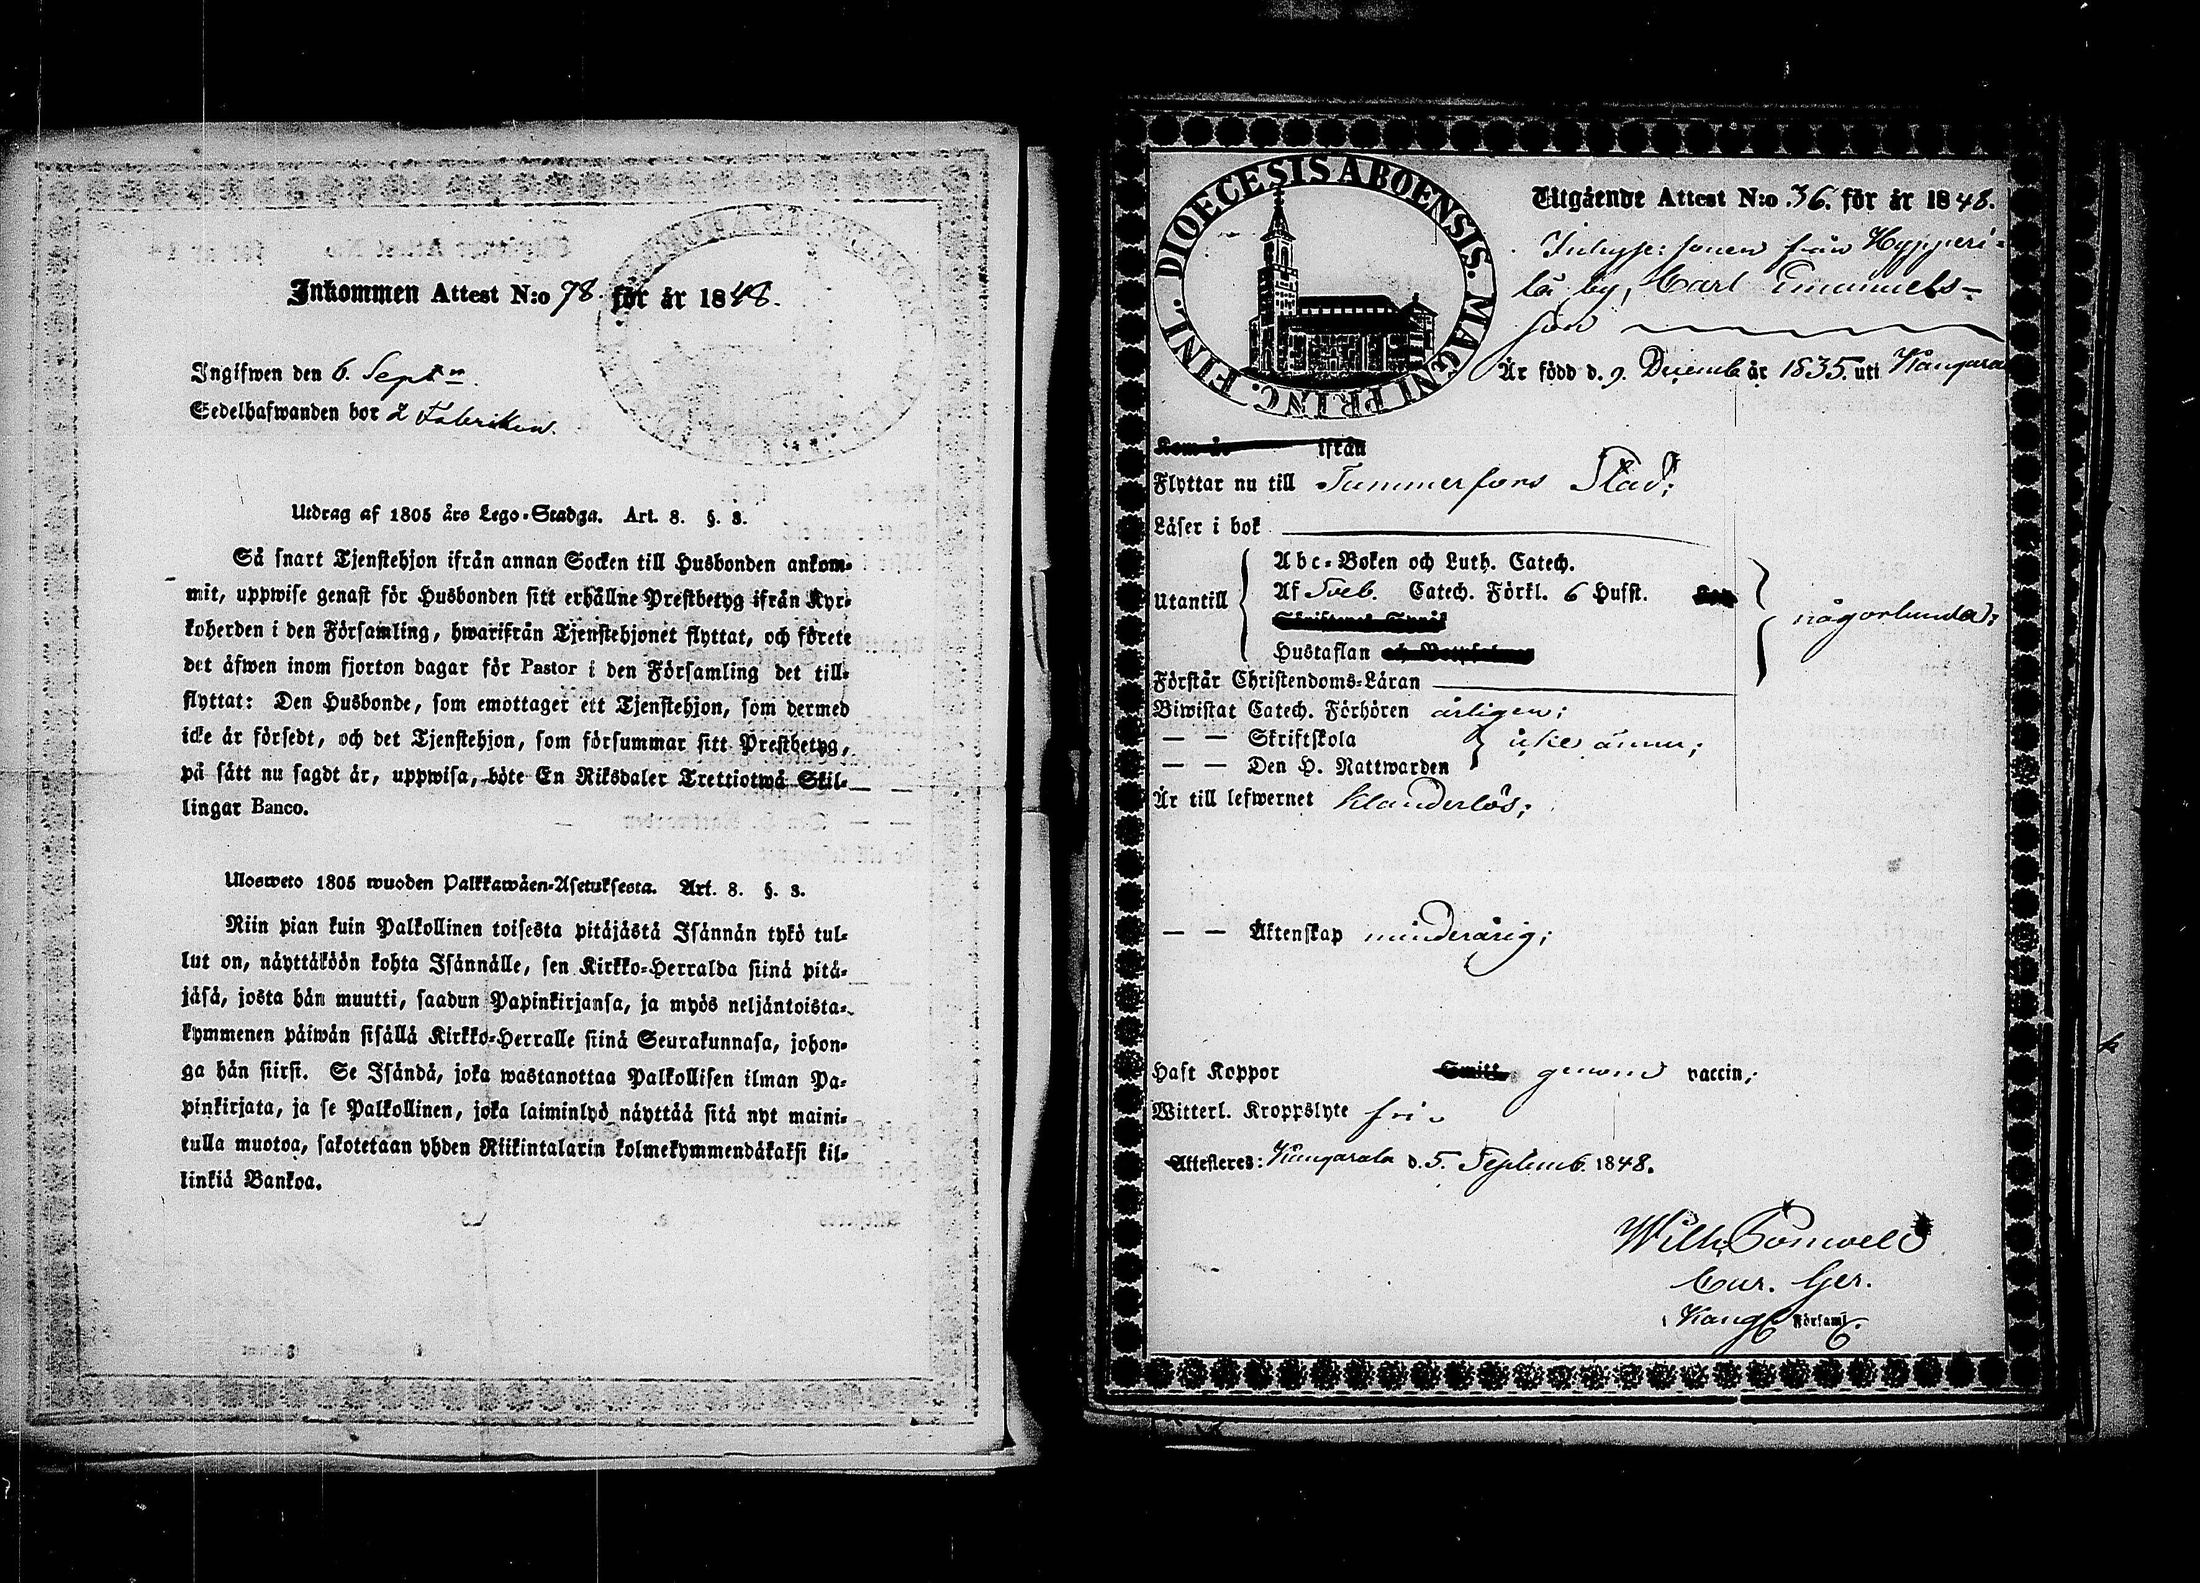 Inkommen Attest N:o 78. för år 1848.
Ingifwen den 6. Sept:
Sedelhafwanden bor å Fabriken.
Utdrag af 1805 års Lego-Stadga. Art. 8. §. 3.
Så snart Tjenstehjon ifrån annan Socken till Husbonden ankom-
mit, uppwise genast för Husbonden sitt erhållne Prestbetyg ifrån Kyr-
koherden i den Församling, hwarifrån Tjenstehjonet flyttat, och förete
det äfwen inom fjorton dagar för Pastor i den Församling det till-
flyttat: Den Husbonde, som emottager ett Tjenstehjon, som dermed
icke är försedt, och det Tjenstehjon, som försummar sitt Prestbetyg,
på sätt nu sagdt är, uppwisa, böte En Riksdaler Trettiotwå Skil-
lingar Banco.
Ulosweto 1805 wuoden Palkkawäen-Asetuksesta. Art. 8. §. 3.
Niin pian kuin Palkollinen toisesta pitäjästä Isännän tykö tul-
lut on, näyttäköön kohta Isännälle, sen Kirkko-Herralda siinä pitä-
jäsä, josta hän muutti, saadun Papinkirjansa, ja myös neljäntoista-
kymmenen päiwän sisällä Kirkko-Herralle siinä Seurakunnasa, johon-
ga hän siirst. Se Isändä, joka wastanottaa Palkollisen ilman Pa-
pinkirjata, ja se Palkollinen, joka laiminlyö näyttää sitä nyt maini-
tulla muotoa, sakotetaan yhden Riikintalarin kolmekymmendäkaksi kil-
linkiä Bankoa.
FINL. DIOECESIS ABOENSIS. MAGNI PRINC.
Utgående Attest N:o 36. för år 1848.
Inhyse: sonen från Hypperi-
lä by, Carl Emanuels-
son
Är född d. 9. Decemb. år 1835. uti Kangasala
Kom år ifrån
Flyttar nu till Tammerfors Stad;
Läser i bok
Abc-Boken och Luth. Catech.
Utantill Af Sveb. Catech. Förkl. 6 Hufst. någorlunda;
Hustaflan
Förstår Christendoms-Läran
Biwistat Catech. Förhören årligen;
— — Skriftskola
— — Den H. Nattwarden icke ännu;
Är till lefwernet klanderlös;
— — Äktenskap minderårig;
Haft Koppor genom vaccin;
Witterl. Kroppslyte fri.
Attesteres: Kangasala d. 5. Septemb. 1848.
Wilh.
Cur. Ger.
i Kang. Församl.